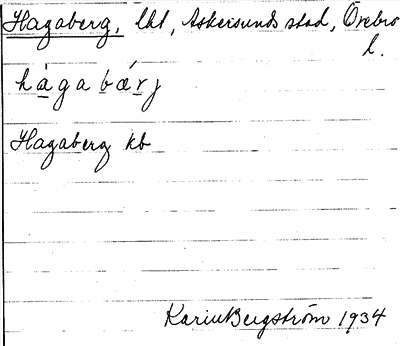 Hagaberg, lht, Askersunds stad, Örebro
l.
hàgabárj
Hagaberg kb
Karin Bergström 1934